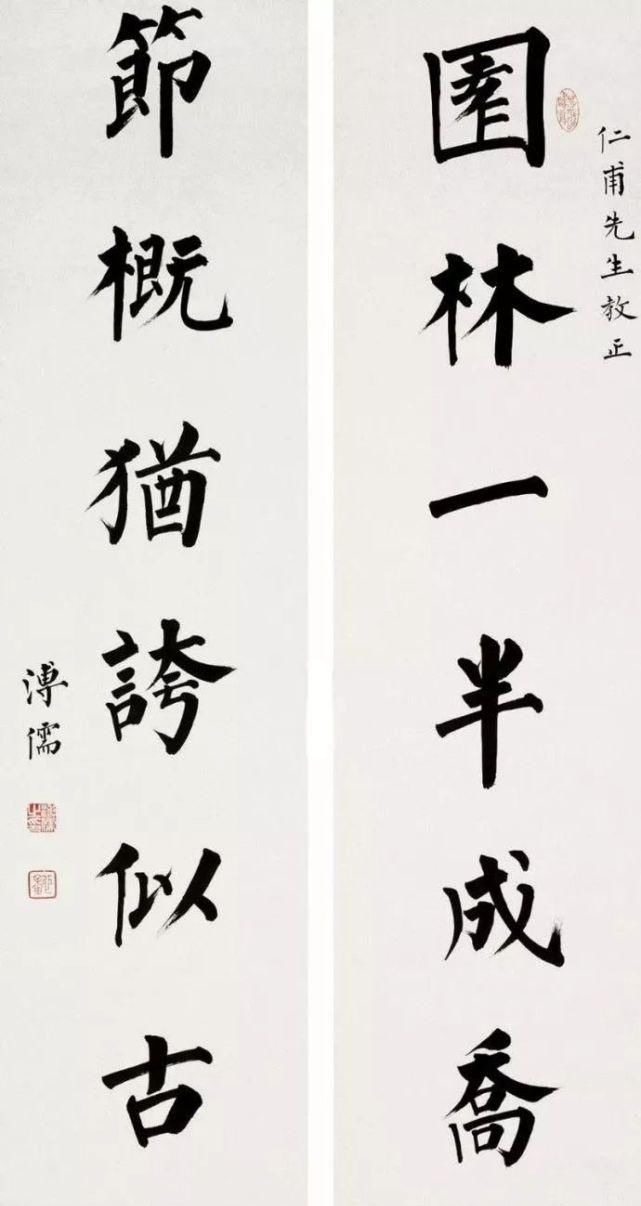 仁甫先生教正
園林一半成喬
節概猶誇似古
溥儒